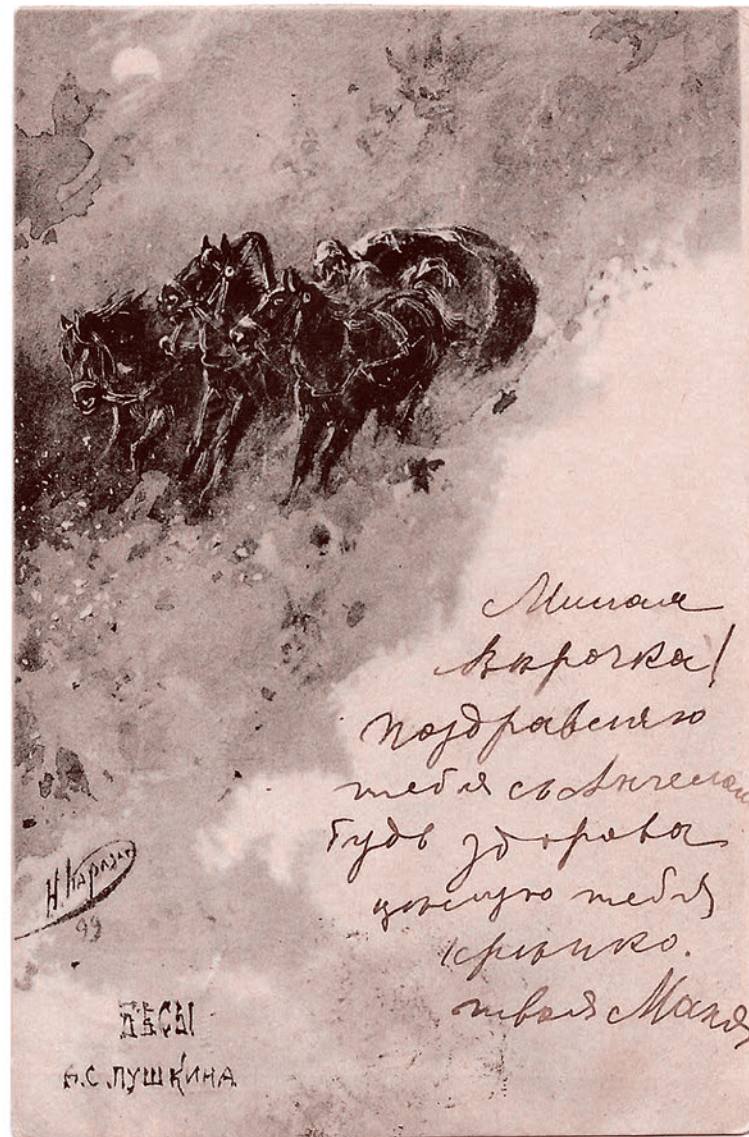 Милая
Вѣрочка!
поздравляю
тебя съ Ангелом
будь здорова
цѣлую тебя
крѣпко.
твоя Маня
Н. Каразин
99
БѢСЫ
А.С. ПУШКИНА